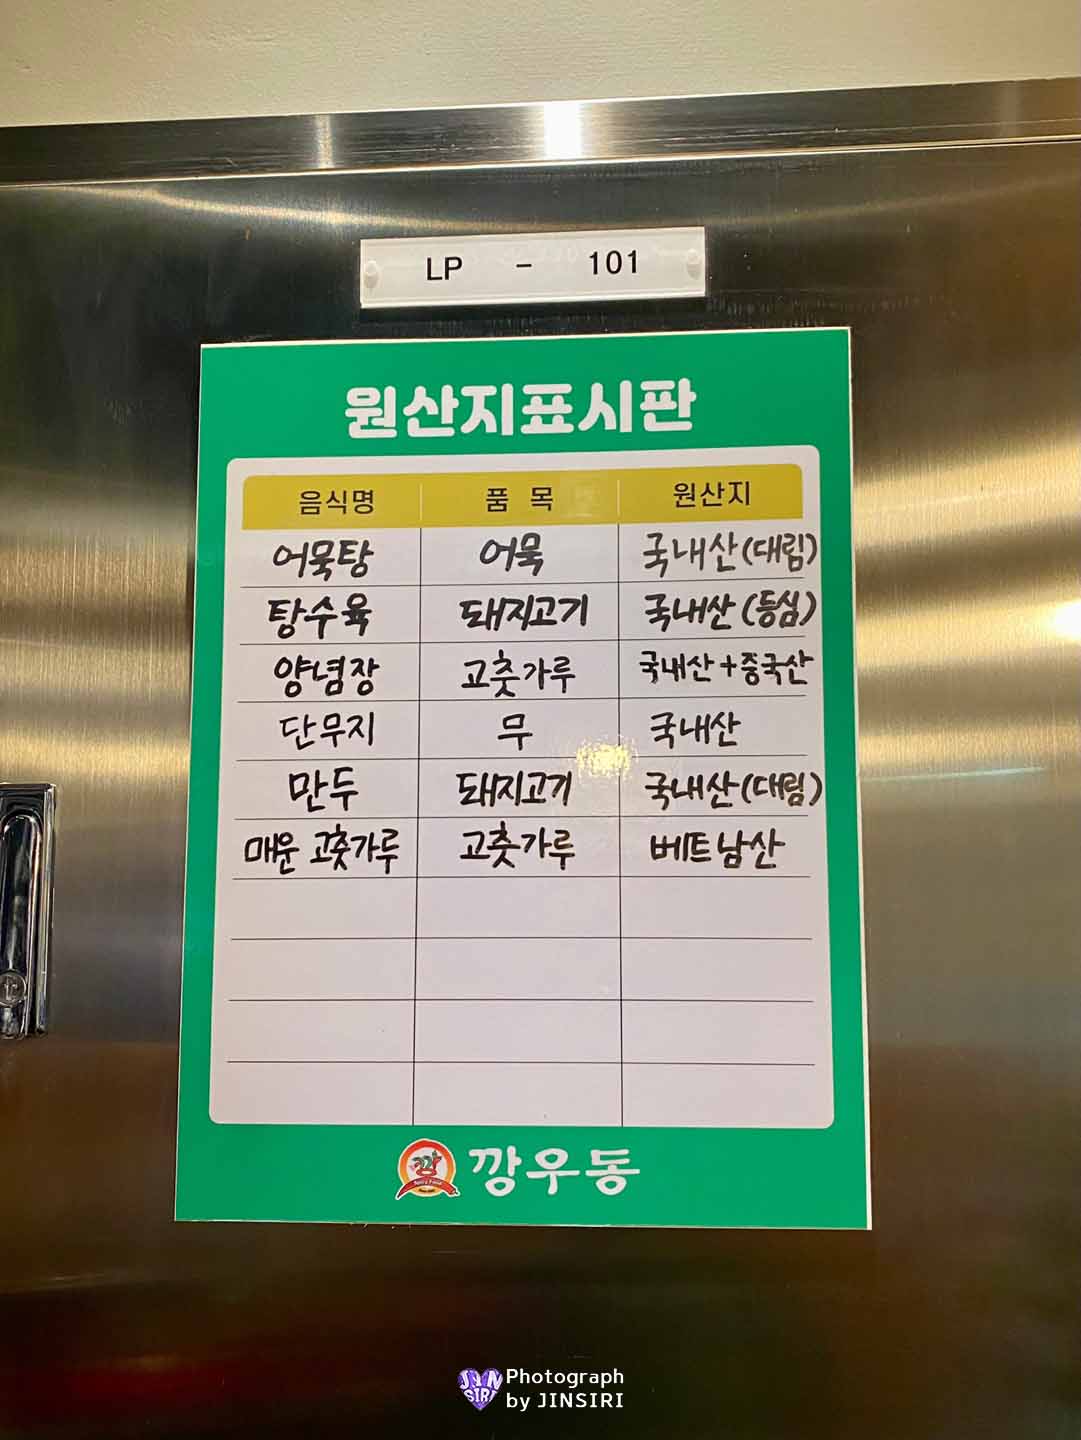 LP - 101
원산지표시판
음식명 품 목 원산지
어묵탕 어묵 국내산(대림)
탕수육 돼지고기 국내산(등심)
양념장 고춧가루 국내산+중국산
단무지 무 국내산
만두 돼지고기 국내산(대림)
매운 고춧가루 고춧가루 베트남산
깡우동
JIN SIRI Photograph
by JINSIRI